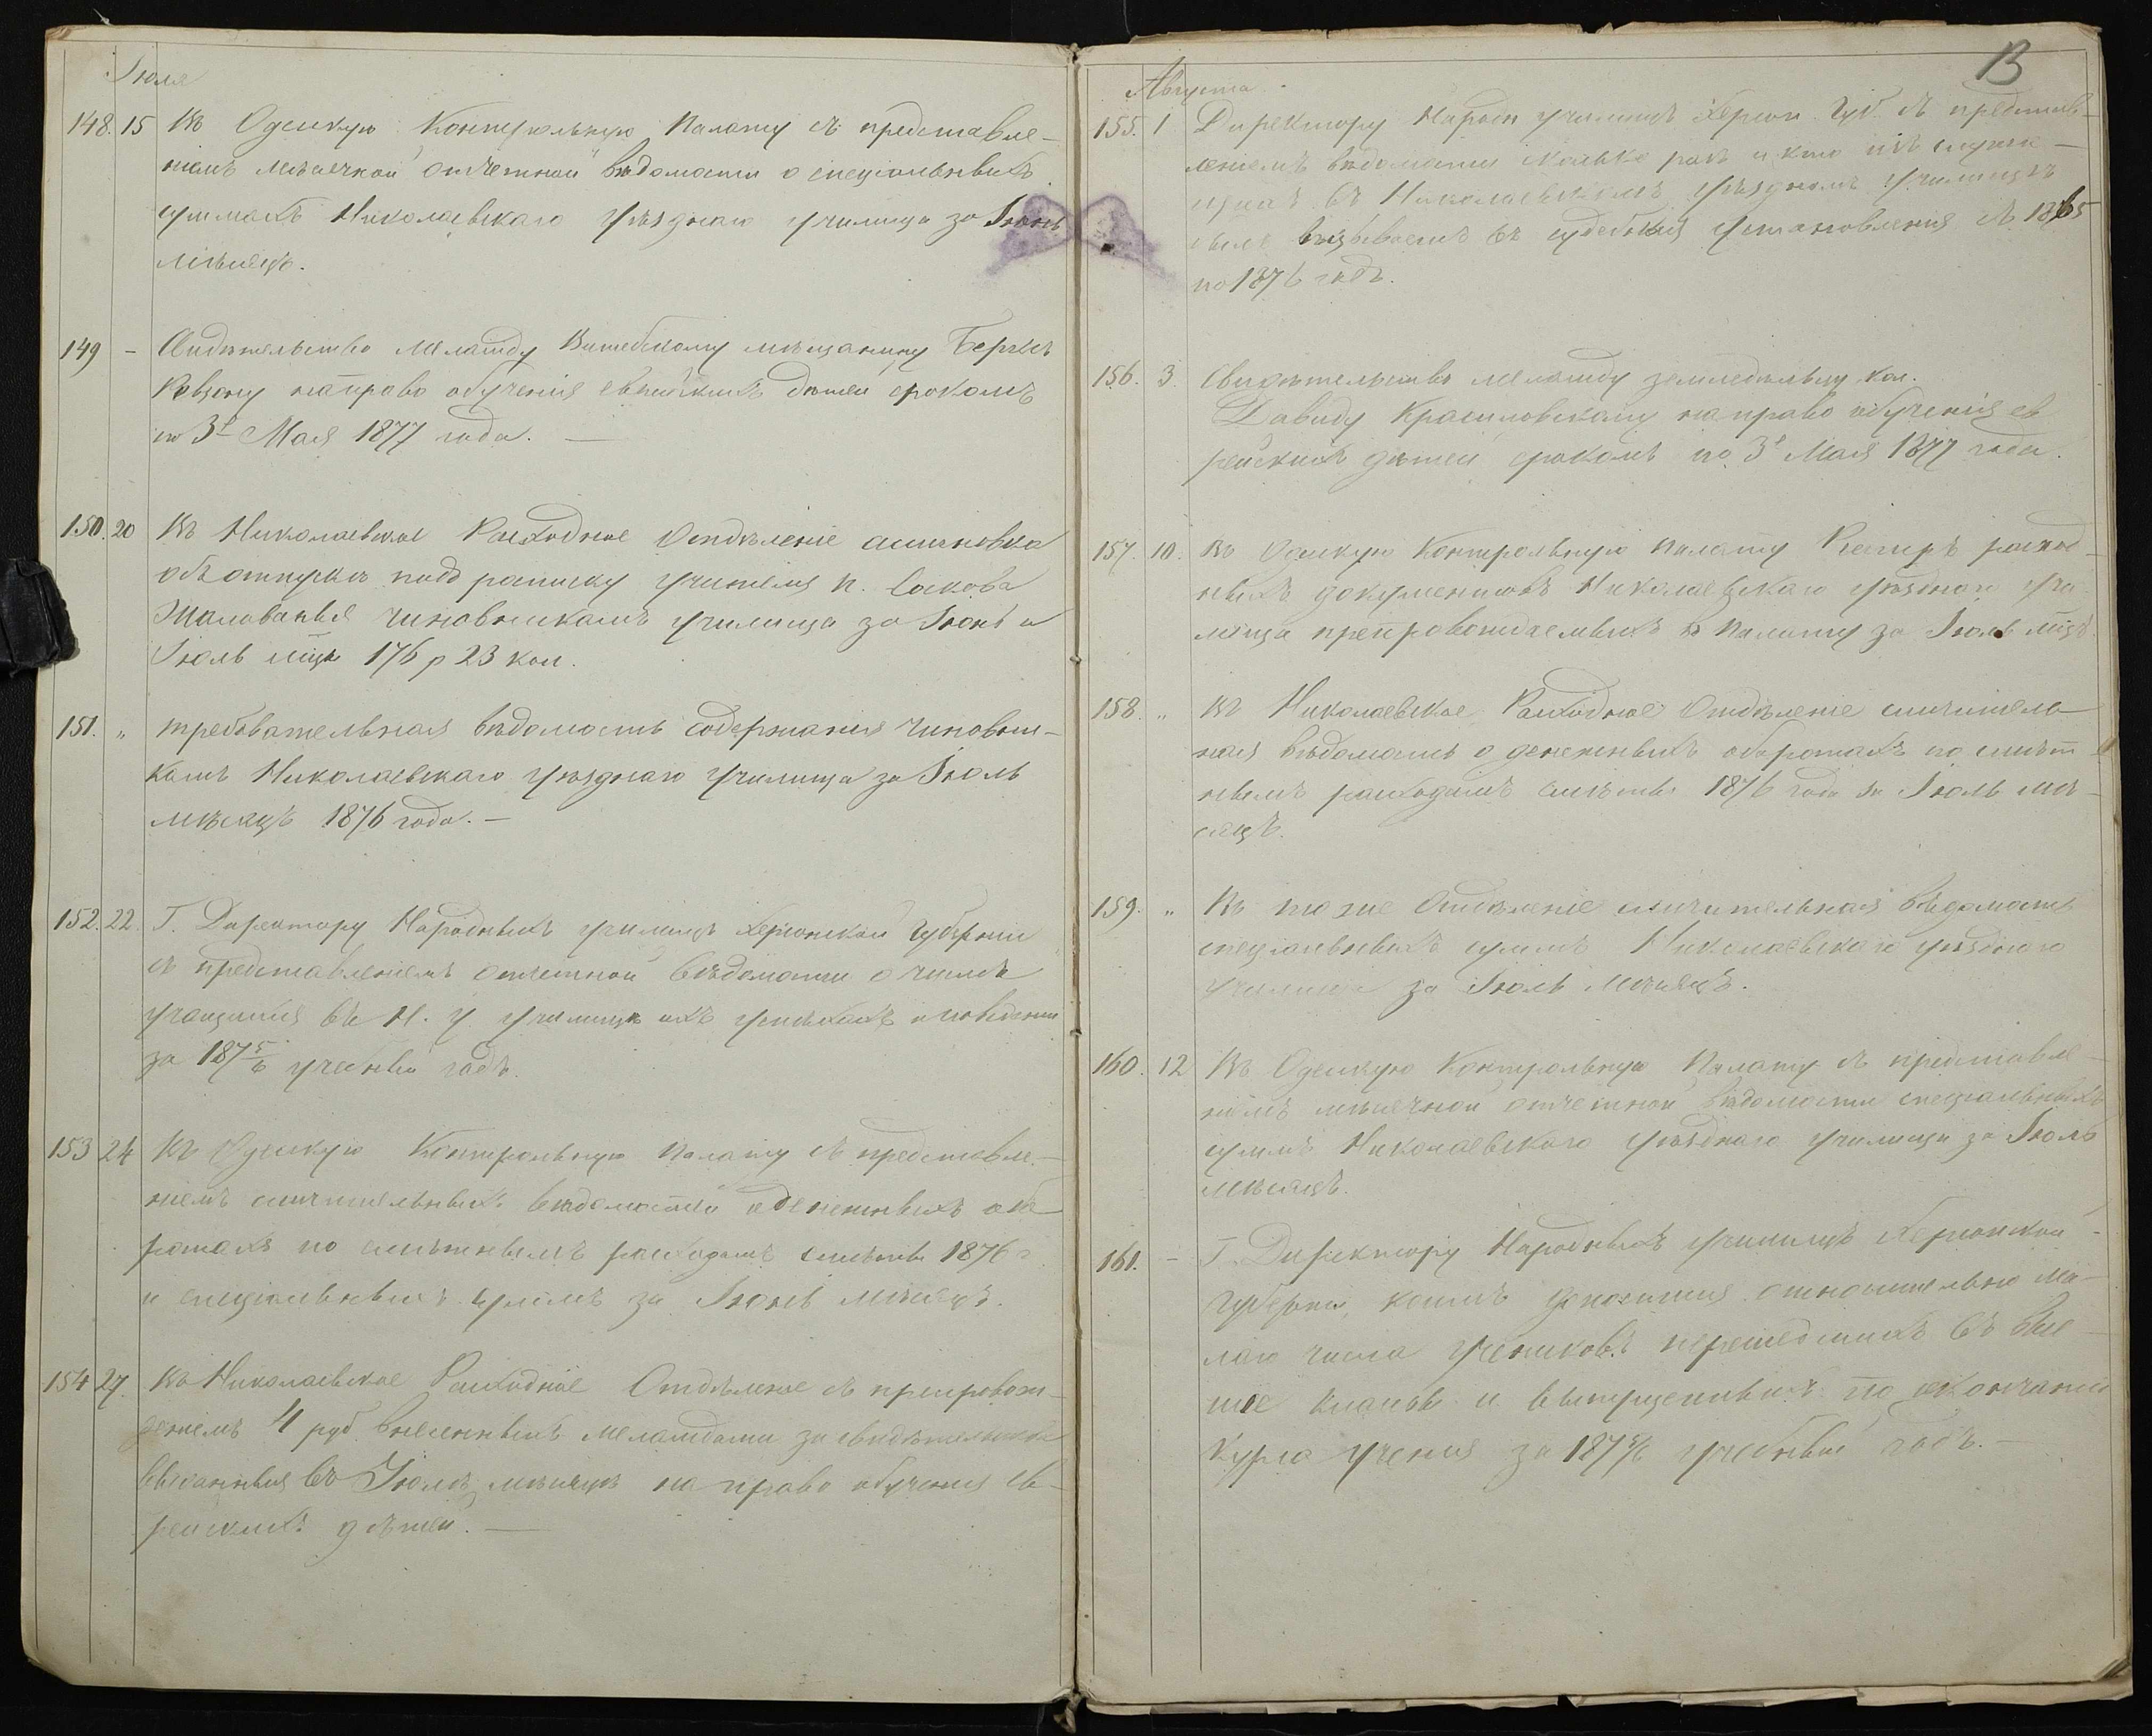 Іюля
148. 15 Въ Одесскую Контрольную Палату съ представле-
ніемъ мѣсячной отчетной вѣдомости о спеціальныхъ
суммахъ Николаевскаго уѣзднаго училища за Іюнь
мѣсяцъ.
149 - Свидѣтельство меламду Витебскому мѣщанину Беркѣ
на право обученія еврейскихъ дѣтей срокомъ
по 3е Мая 1877 года. —
150. 20 Въ Николаевское Расходное Отдѣленіе ассигновка
объ отпускѣ подъ расписку учителя п.
жалованья чиновникамъ училища за Іюнь и
Іюль мцъ 176 р 23 коп.
151. „ требовательная вѣдомость содержанія чиновни-
камъ Николаевскаго уѣзднаго училища за Іюль
мѣсяцъ 1876 года. —
152. 22. Г. Директору Народныхъ училищъ Херсонской Губерніи
съ представленіемъ отчетной вѣдомости о числѣ
учащихся въ Н. У училищѣ ихъ успѣхахъ и поведеніи
за 187 5/6 учебный годъ.
153 24 Въ Одесскую Контрольную Палату съ представле-
ніемъ сличительныхъ вѣдомостей о денежныхъ обо-
ротахъ по смѣтнымъ расходамъ смѣты 1876 г
и спеціальныхъ суммъ за Іюнь мѣсяцъ.
154 27. Въ Николаевское Расходное Отдѣленіе съ препровож-
деніемъ 4 руб. внесенныхъ меламдами за свидѣтельства
выданныя въ Іюлѣ мѣсяцѣ на право обученія ев-
рейскихъ дѣтей. —
13
Августа.
155. 1 Директору Народн училищъ Херсон. Губ. съ представ-
леніемъ вѣдомости сколько разъ и кто изъ служа-
щихъ въ Николаевскомъ уѣздномъ училищѣ
былъ вызываемъ въ судебныя установленія съ 1865
по 1876 годъ.
156. 3. Свидѣтельство меламду земледѣльцу кол.
Давиду Красиловскому на право обученія ев
рейскихъ дѣтей срокомъ по 3е Мая 1877 года.
157. 10. Въ Одесскую Контрольную Палату Реестръ расход-
ныхъ документовъ Николаевскаго уѣзднаго учи
лища препровождаемыхъ въ Палату за Іюль мцъ.
158. „ Въ Николаевское Расходное Отдѣленіе сличитель-
ная вѣдомость о денежныхъ оборотахъ по смѣт
нымъ расходамъ смѣты 1876 года за Іюль мѣ-
сяцъ.
159. „ Въ тоже Отдѣленіе сличительная вѣдомость
спеціальныхъ суммъ Николаевскаго уѣзднаго
училища за Іюль мѣсяцъ.
160. 12 Въ Одесскую Контрольную Палату съ представле-
ніемъ мѣсячной отчетной вѣдомости спеціальныхъ
суммъ Николаевскаго уѣзднаго училища за Іюль
мѣсяцъ.
161. - Г. Директору Народныхъ училищъ Херсонской
Губерніи, относительно ма-
лаго числа учениковъ перешедшихъ въ выс-
шіе классы и выпущенныхъ по окончаніи
курса ученія за 187 5/6 учебный годъ. —